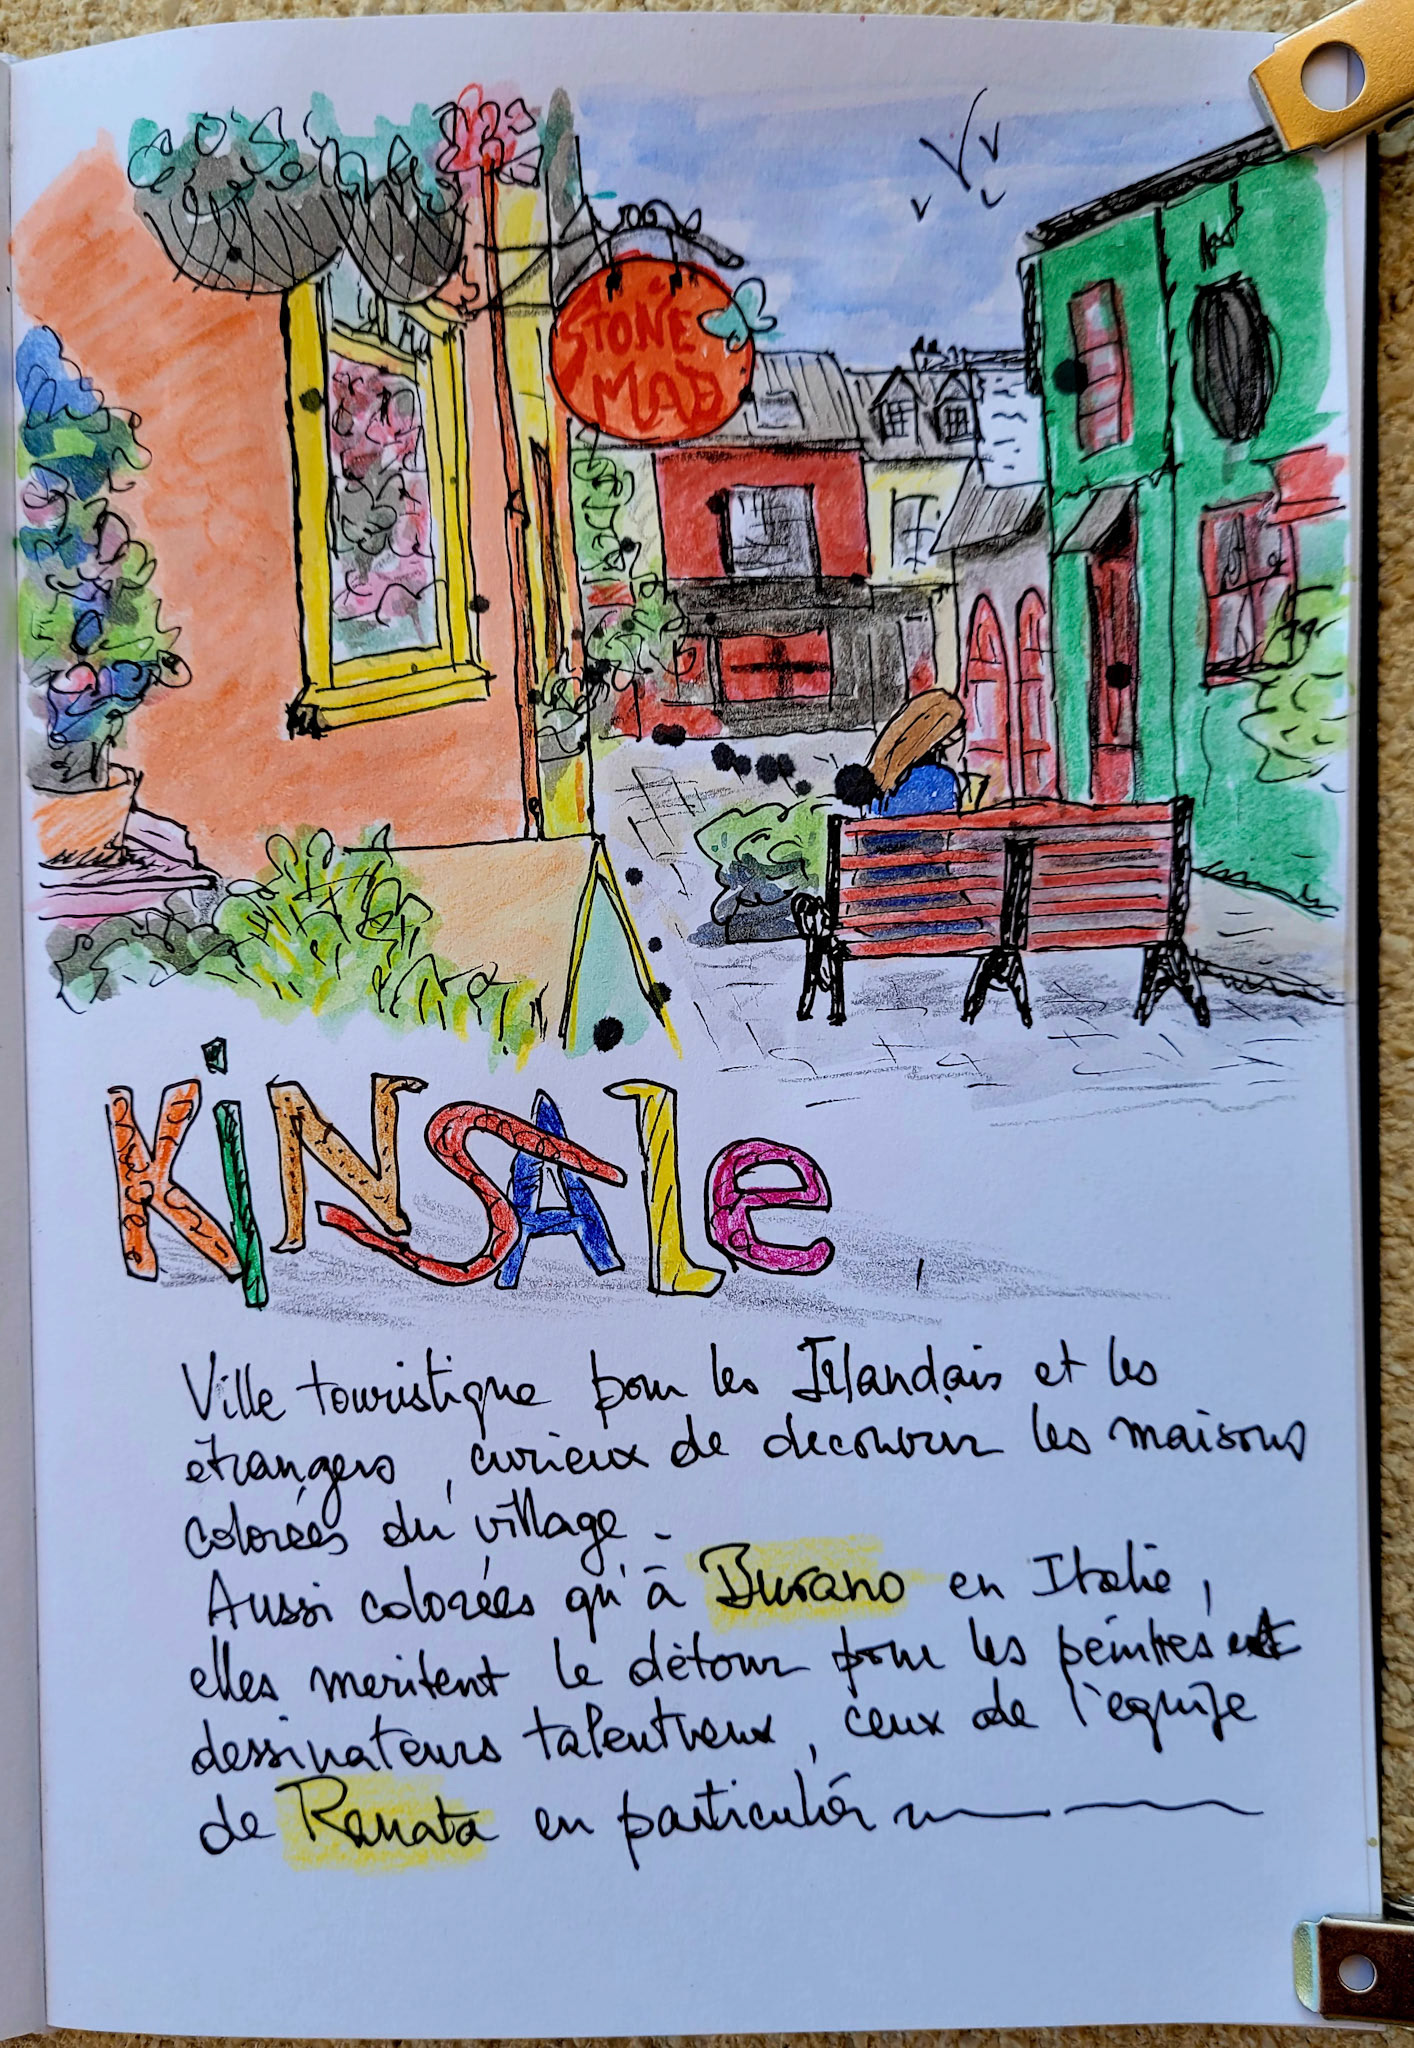 STONE
MAD
KiNSAle
Ville touristique pour les Irlandais et les
étrangers, curieux de decouvrir les maisons
colorées du village -
Aussi colorées qu'à Burano en Italie,
elles meritent le détour pour les peintres et
dessinateurs talentueux, ceux de l'equipe
de Renata en particulier